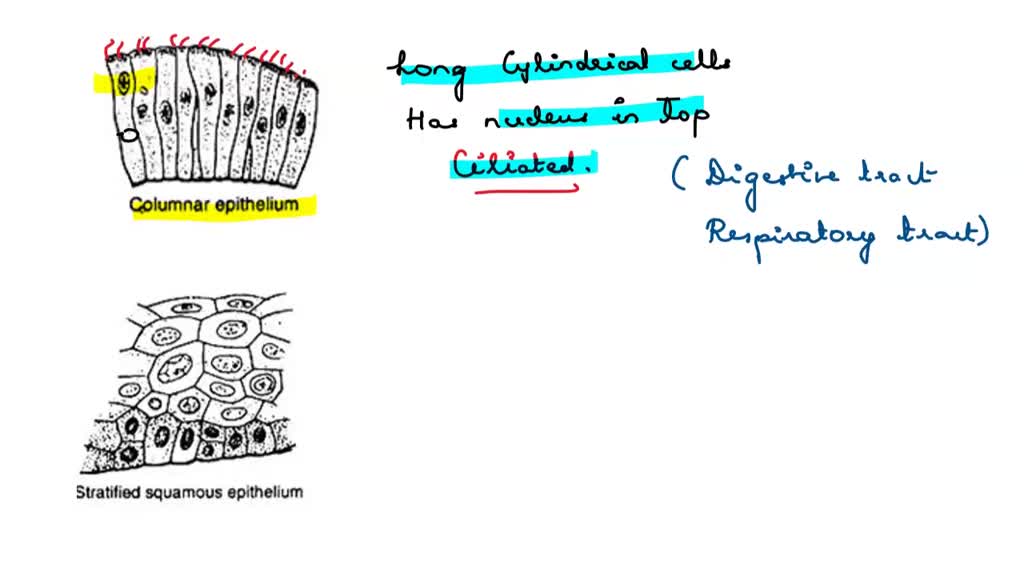 Long Cylindrical cells
Has nucleus in top
Ciliated.
( Digestive tract
Respiratory tract)
Columnar epithelium
Stratified squamous epithelium